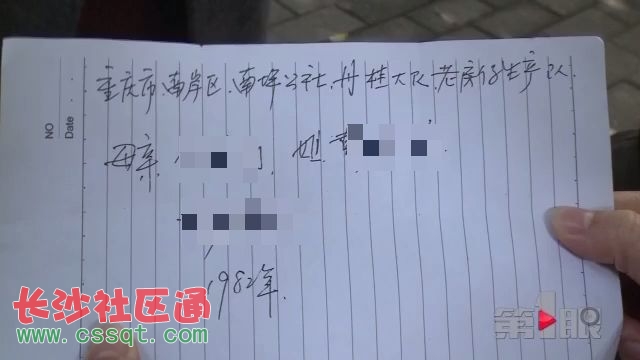 重庆市南岸区南坪公社丹桂大队老房子生产队
母亲
1982年.
NO
Date
长沙社区通
www.cssqt.com
第1眼